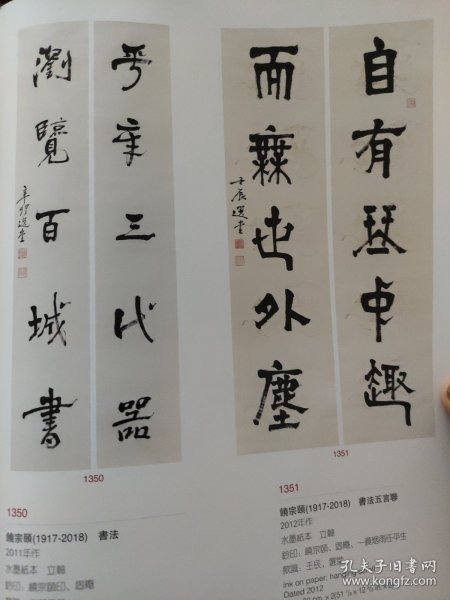 自有琴中趣
而無世外塵
壬辰選堂
平章三代器
瀏覽百城書
辛卯選堂
1350
1351
1350
饒宗頤(1917-2018) 書法
2011年作
水墨紙本 立軸
鈐印：饒宗頤印、固庵
1351
饒宗頤(1917-2018) 書法五言聯
2012年作
水墨紙本 立軸
鈐印：饒宗頤、固庵、一蓑煙雨任平生
款識：壬辰，選堂
Ink on paper; hanging
Dated 2012
cm x 2(51
孔夫子旧书网